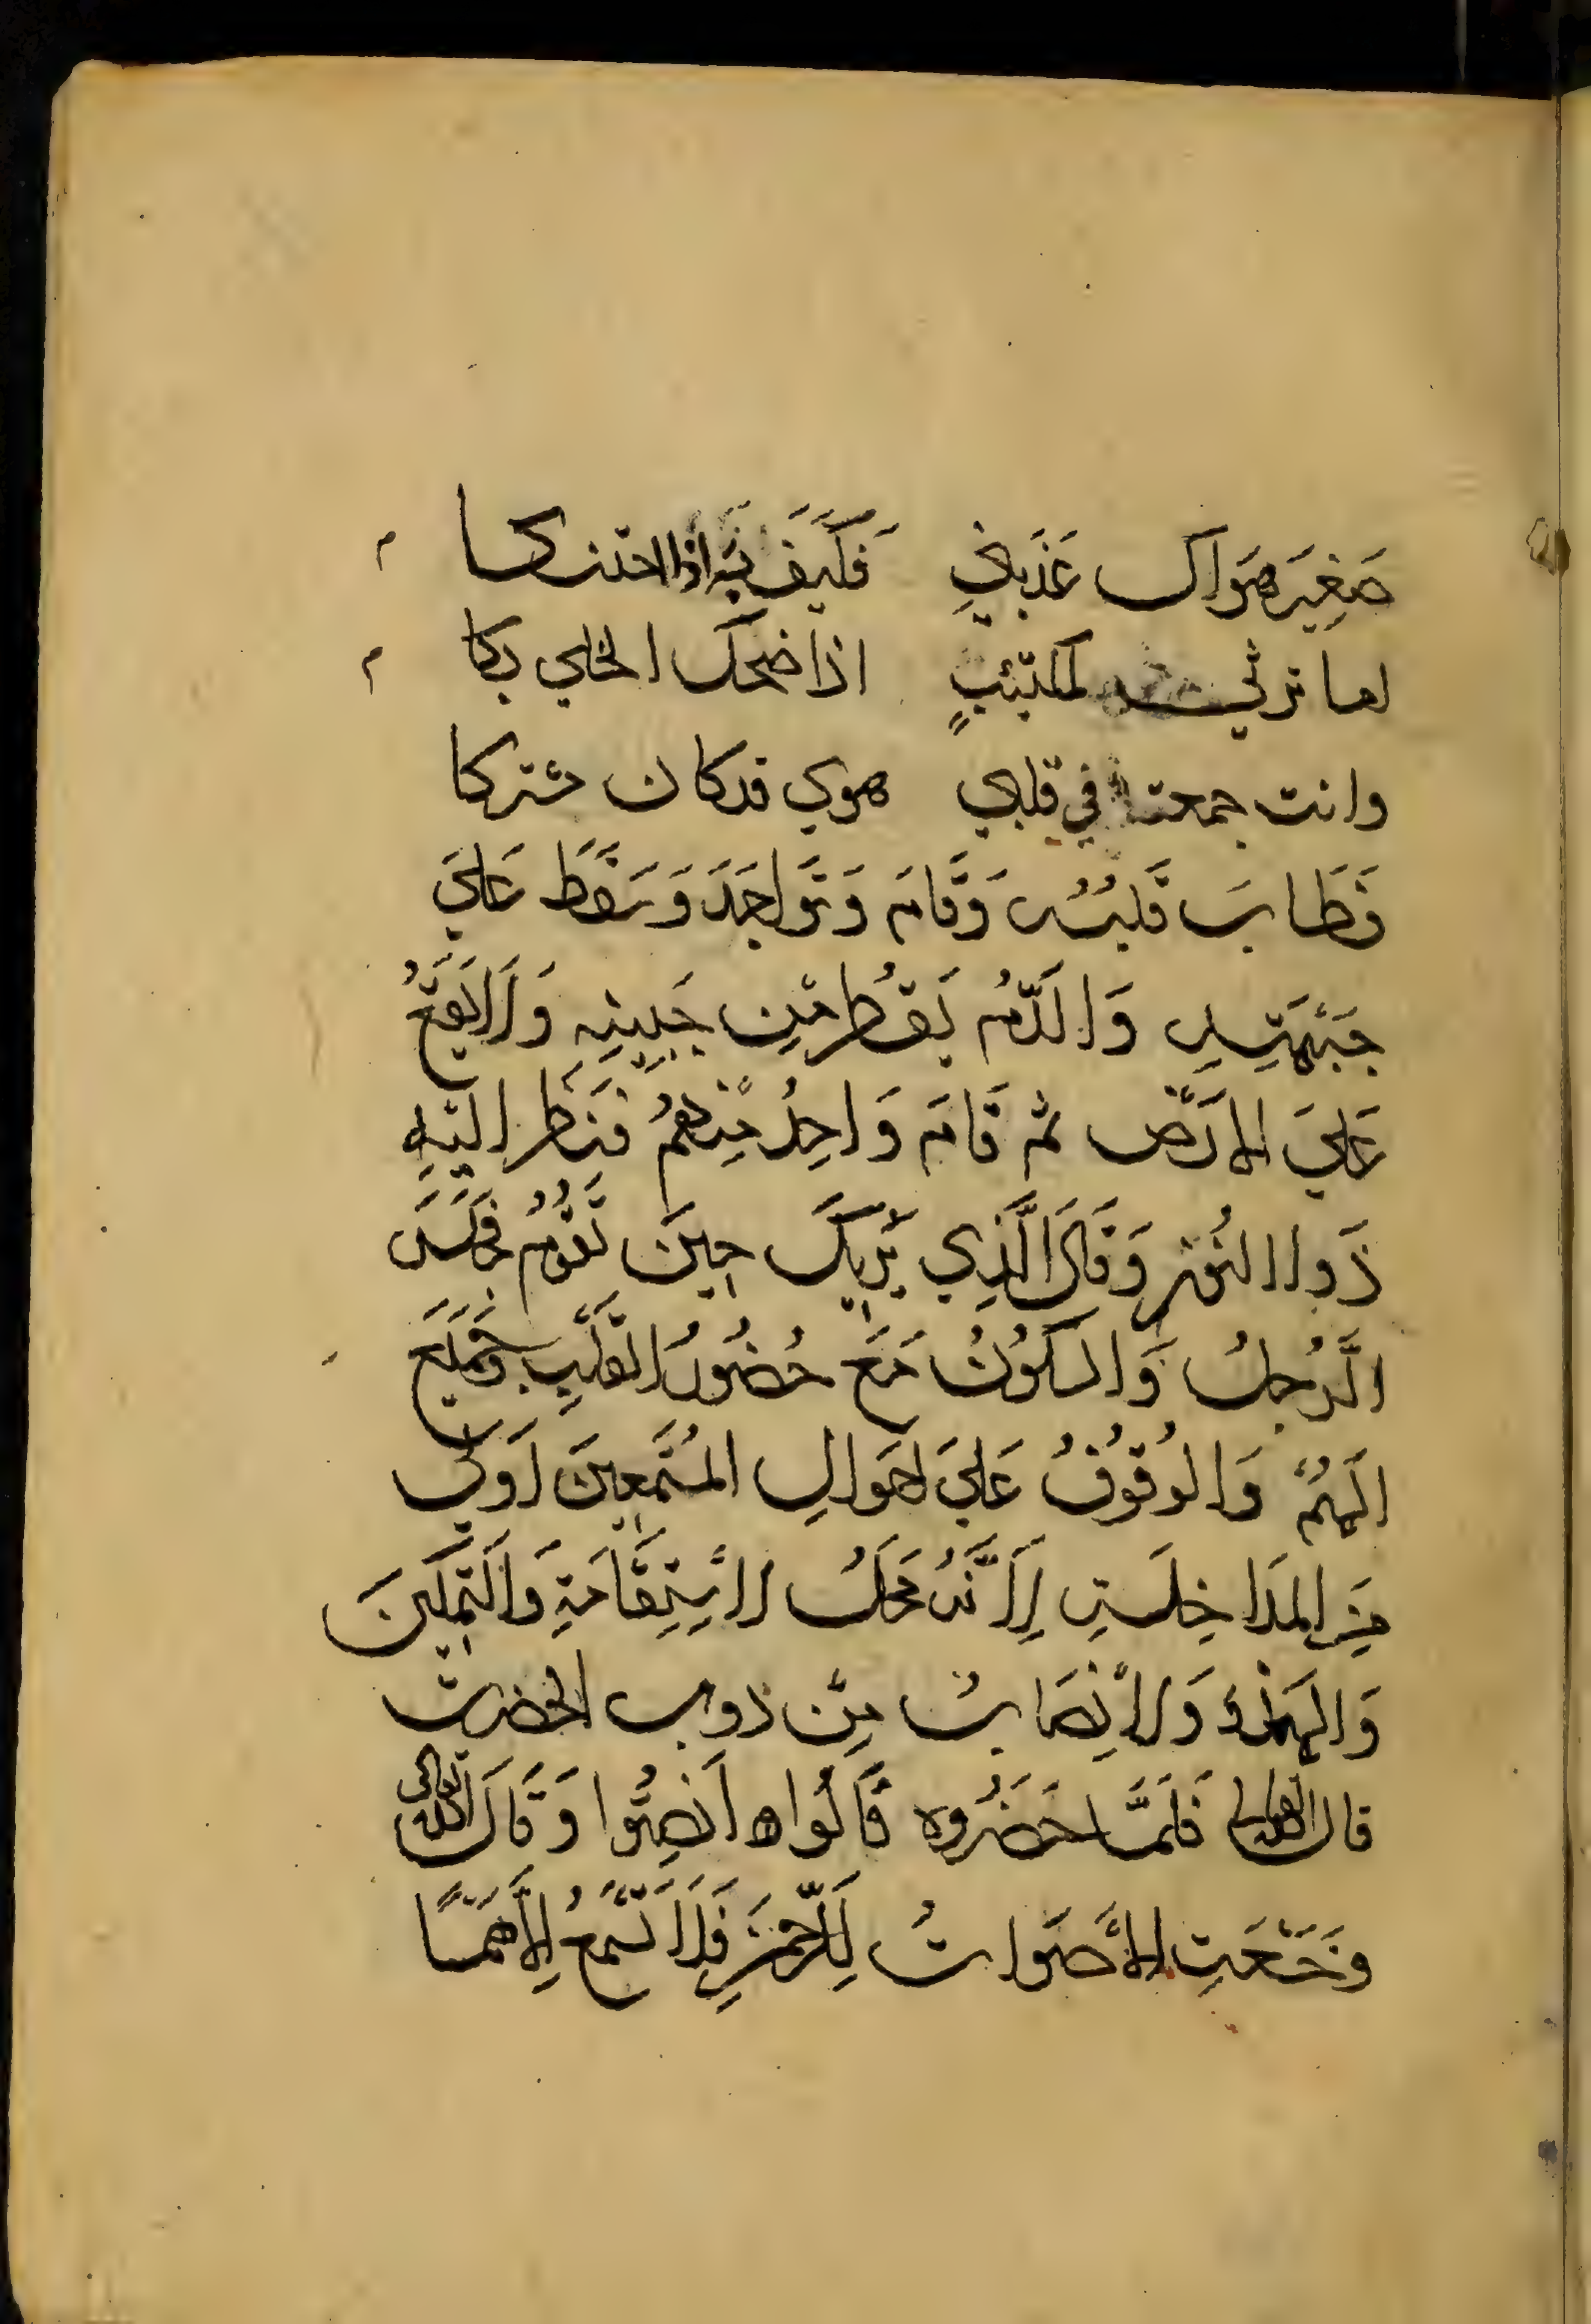 صَغِيَر هَوَاك عَذَّبَنِي فَكَيْفَ بِهِ اذا احتنكا
اما ترثي لمكتئبٍ اذا ضحك الخلي بكا
وانت جمعت في قلبي هوي قد كان مشتركا
فَطَابَ قَلبُهُ وَقَامَ وَتَوَاجَدَ وَسَقَطَ عَلَيَ
جَبْهَتِهِ وَالدَّمُ يَقطُر مِن جَبِينِهِ وَلَا يَقَعُ
عَلَيَ الاَرْض ثم قَامَ وَاحِدُ مِنهُمُ فَنَظَر الَيْهِ
ذَوا النُون وَقَالَ الَّذِي يَرَيكَ حِينَ تَقُومُ فَجَلَسَ
الَّرجُلُ وَالسكُونُ مَعَ حُضُورُ القَلْبِ وَجَمْعِ
الهَمُ وَالوُقوُفُ عَلَيَ احوَالِ المُستَمِعِينَ اَولي
مِنَ المدَاخِلَةِ لِاَنَّهُ مَحَلُ الاسْتِقَامَةِ وَالتَمكِينَ
وَالهَدُؤ وَالاْنِصَاتُ مِن ذوب الحضرت
قال الله تعالى فَلَمَّا حَضَرُوه قَالُوا اَنصِتُوا وَقَالَ الله تعالى
وخَشَعَتِ الاَصوَاتُ لِلرَّحمَنِ فَلَا تَسمَعُ اِلاَّهمَسًا